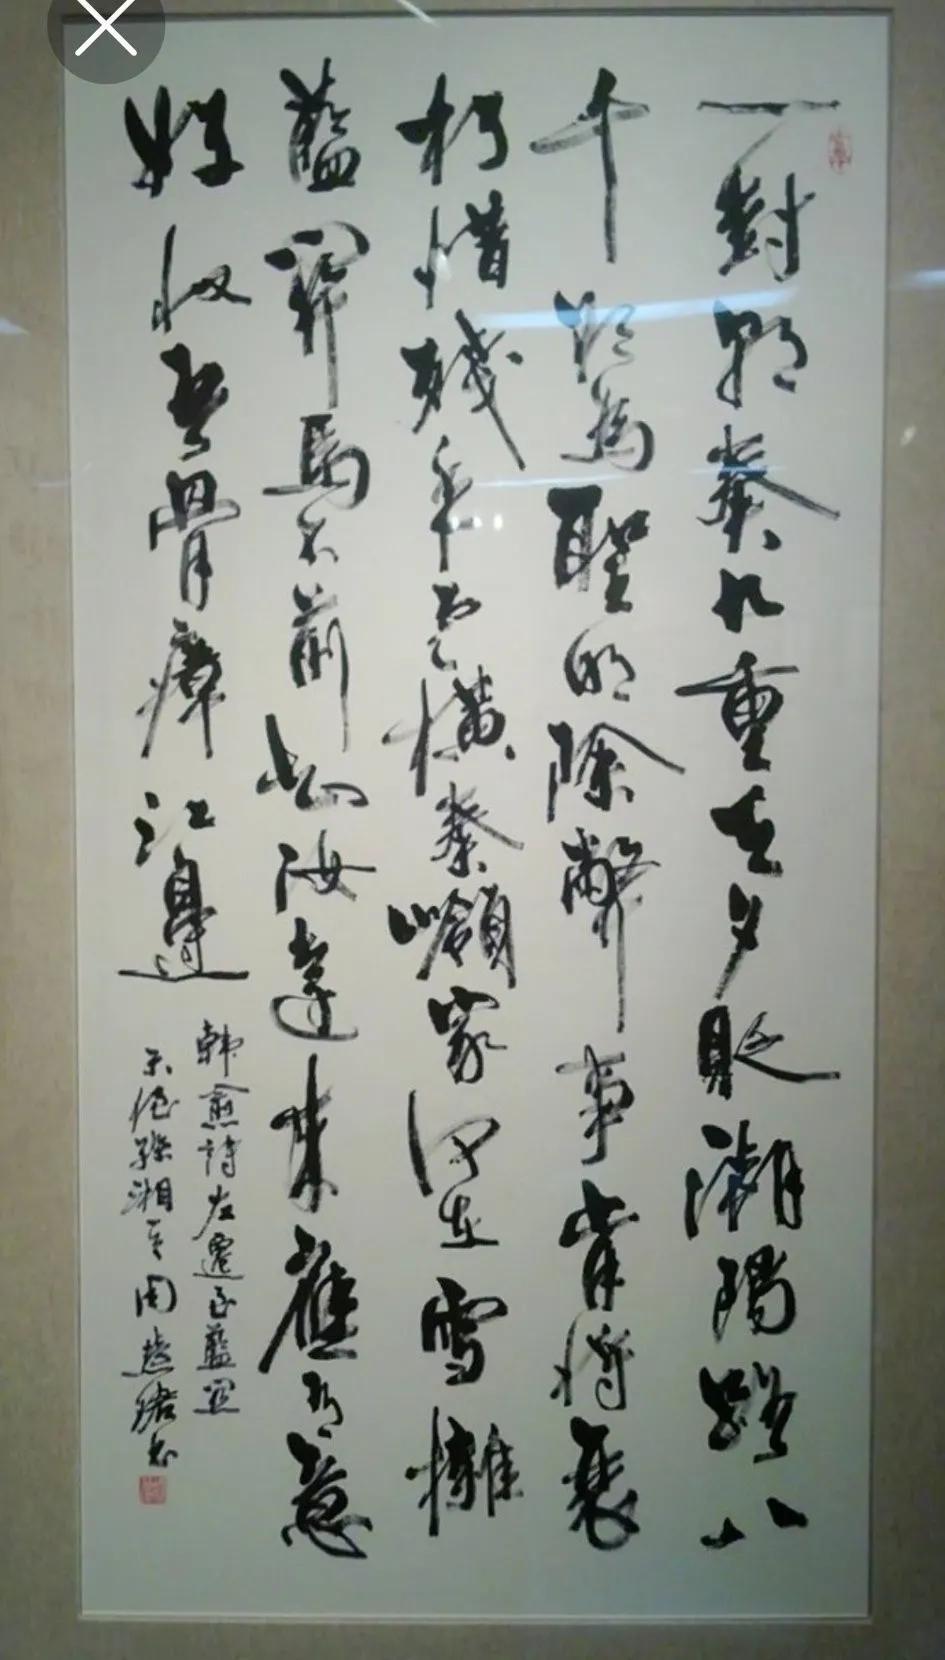 一封朝奏九重天夕貶潮陽路八
千欲為聖明除弊事肯將衰
朽惜殘年雲橫秦嶺家何在雪擁
藍關馬不前知汝遠來應有意
好收吾骨瘴江邊
韓愈詩左遷至藍關
示侄孫湘 周慧珺書